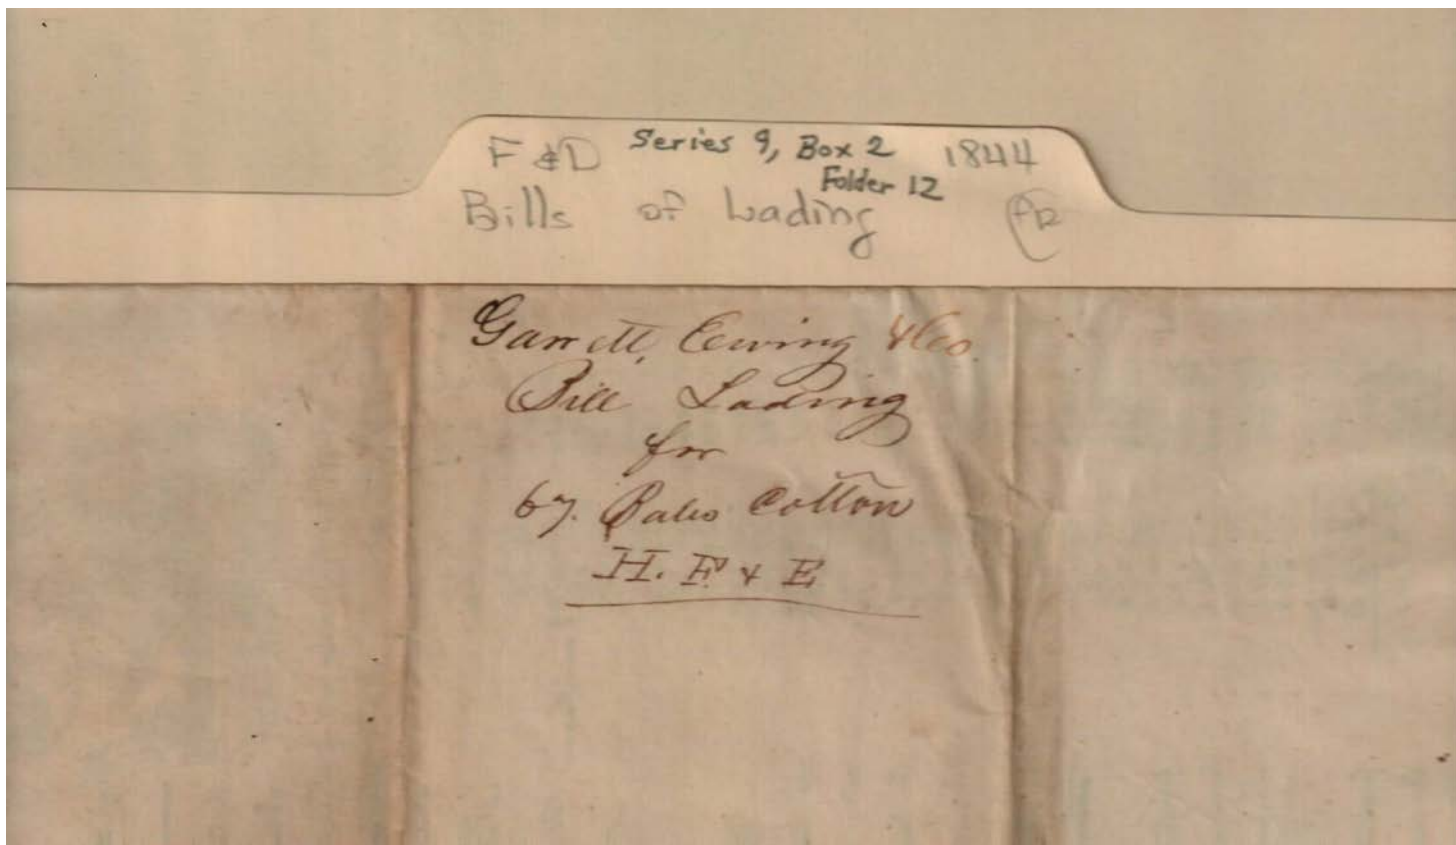 F & D Series 9, Box 2 1844
Folder 12
Bills of Lading
Garrett, Ewing & Co.
Bill Lading
for
67. Bales Cotton
H. F. & E